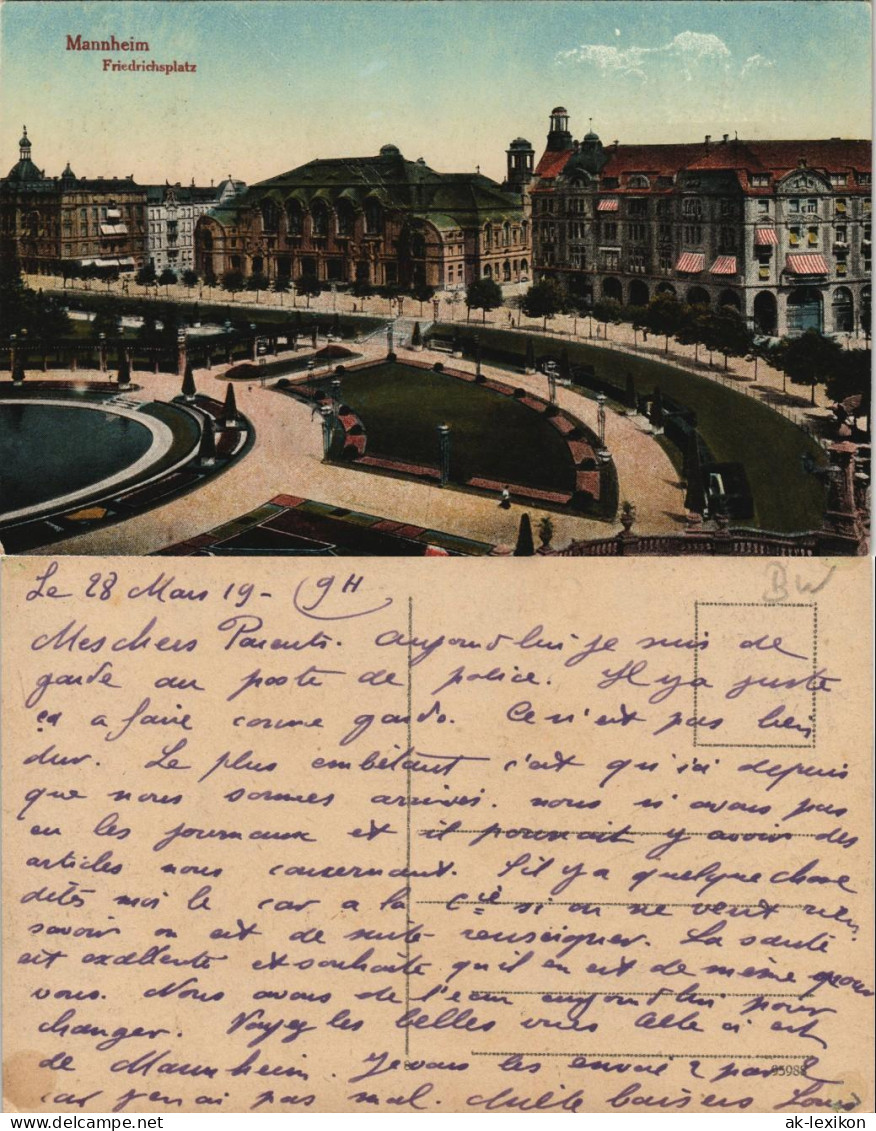 Mannheim
Friedrichsplatz
BW
Le 28 Mars 19 - 9H
Mes chers Parents. Aujourd'hui je suis de
garde au poste de police. Il y a juste
ça à faire comme garde. Ce n'est pas bien
dur. Le plus embêtant c'est qu'ici depuis
que nous sommes arrivés. nous n'avons pas
eu les journaux et il pourrait y avoir des
articles nous concernant. S'il y a quelque chose
dites moi le car a la Cie si on ne veut rien
savoir on est de suite renseigner. La santé
est excellente et souhaite qu'il en est de même pour
vous. Nous avons de l'eau aujourd'hui pour
changer. Voyez les belles vues celle ci est
de Mannheim. Je vais les envoié 2 par 2
car j'en ai pas mal. mille baisers Louis
95988
ak-lexikon